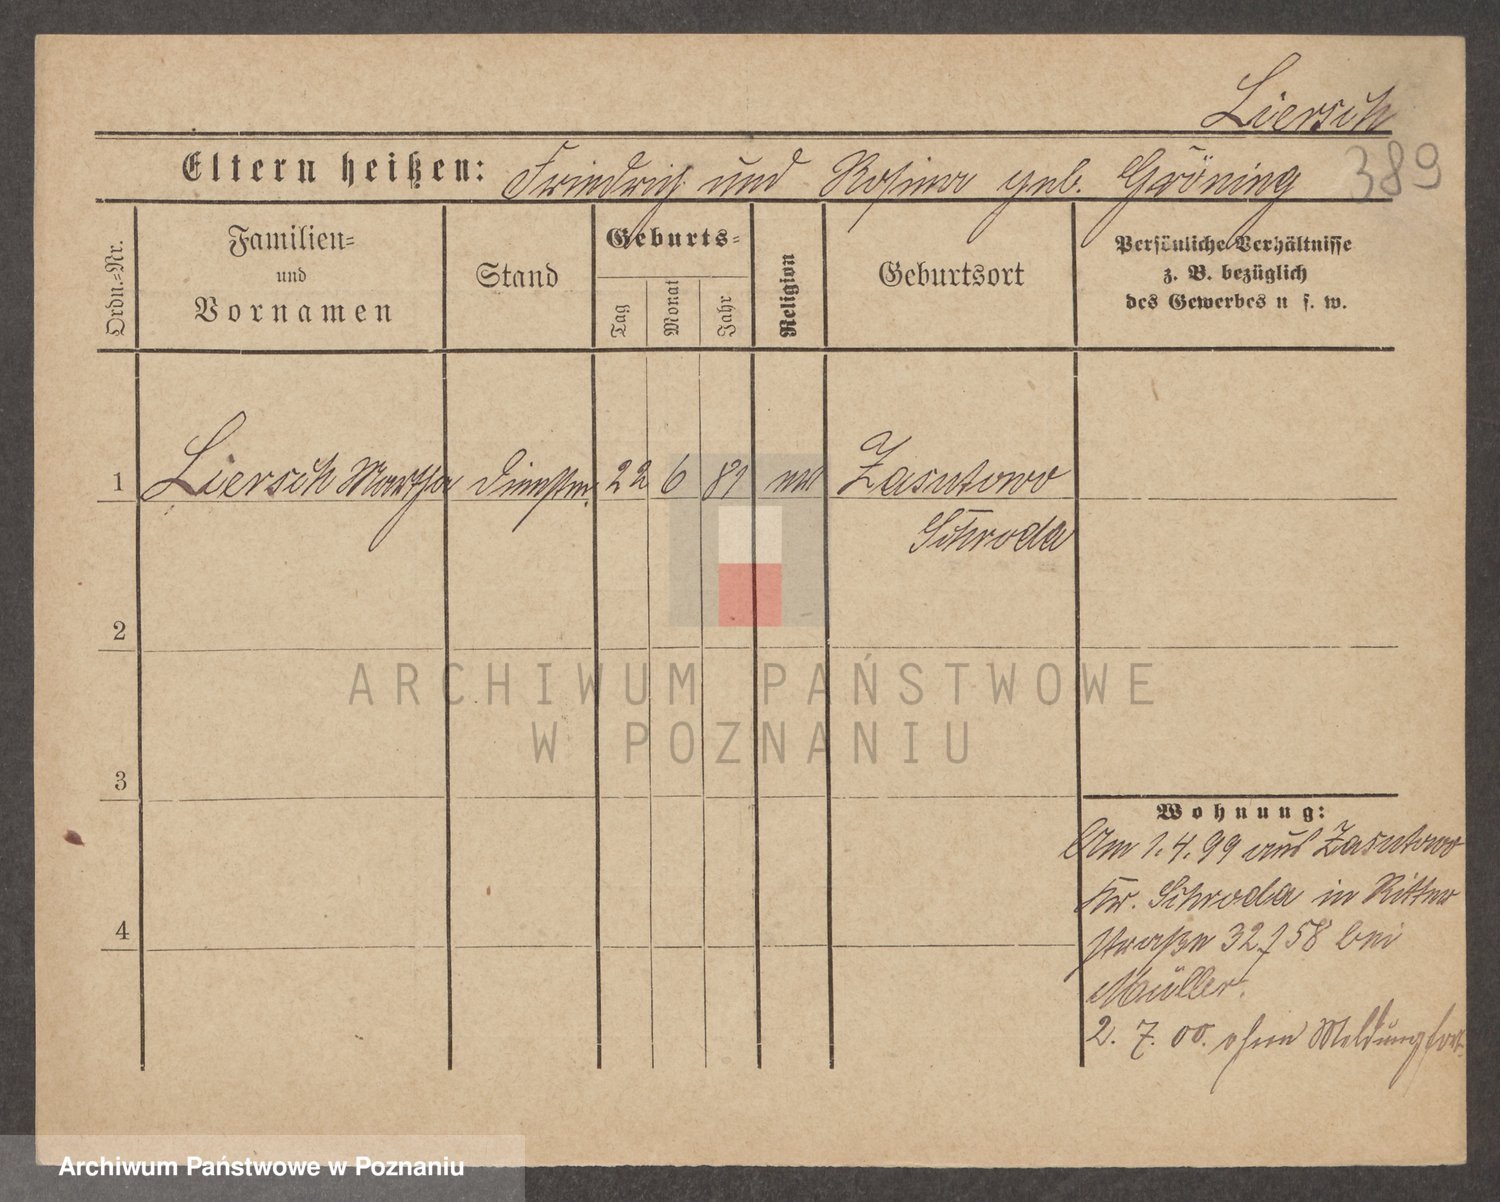 Liersch
389
Eltern heißen: Friedrich und Rosina geb. Gröning
Ordn.-Nr.
Familien-
und
Vornamen
Stand
Geburts-
Tag
Monat
Jahr
Religion
Geburtsort
Persönliche Verhältnisse
z. B. bezüglich
des Gewerbes u s. w.
1 Liersch Martha Dienstm. 22 6 81 Zasutowo
Schroda
2
3
4
Wohnung:
Am 1.4.99 aus Zasutowo
Kr. Schroda in Ritter
straße 32/58 bei
Müller.
2. 7. 00. ohne Meldung fort.
ARCHIWUM PAŃSTWOWE
W POZNANIU
Archiwum Państwowe w Poznaniu